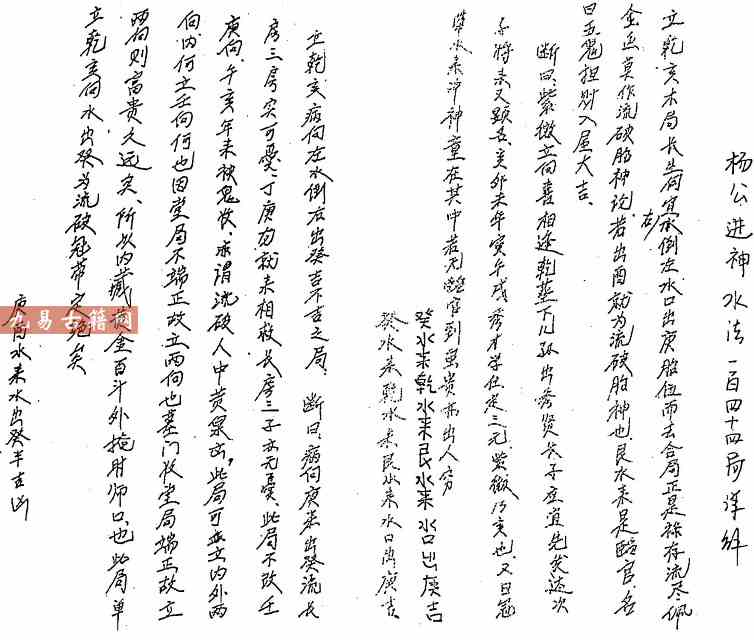 杨公进神水法一百四十四局详解
立乾亥木局长生向宜右水倒左水口出庚胎位而去合局正是禄存流尽佩
金鱼莫作流破胎神论若出酉就为流破胎神也艮水来是临官名
曰五鬼担财入屋大吉、
断曰、紫微立向喜相逢乾墓下儿孙出秀贤长子应宜先发达次
子将来又显名亥卯未年寅午戌秀才学仕定三元、紫微乃亥也、又曰冠
带水来冲神童在其中若无临官到虽贵亦出人穷
癸水来乾水来艮水来水口出庚吉
癸水来乾水来艮水来水口出庚吉、
立乾亥病向左水倒右出癸吉不吉之局、断曰、病向庚来出癸流长
房三房实可忧、丁庚方就来相救长房三子亦无忧、此局不改壬
庚向、午亥年来被鬼收、求谓流破人中黄泉凶、此局可要立内外两
向、内向立壬向何也因堂局不端正故立两向也墓门收堂局端正故立
两向则富贵久远矣、所以内藏黄金百斗外掩时师口也此局单
立乾亥向水出癸为流破冠带定绝矣
庚向水来水出癸半吉凶
九易古籍网